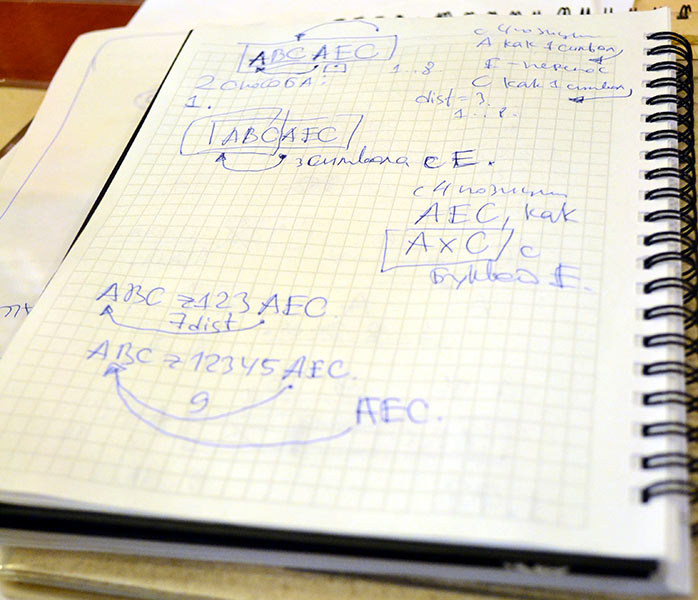 ABCAEC
с 4 позиции
A как 1 символ
E - перенос
C как 1 символ
2 способа:
1..8
dist = 3.
1..8.
1.
ABCAEC
3 символа с E.
с 4 позиции
AEC, как
AxC с
буквой E.
ABC 123 AEC.
7 dist
ABC 12345 AEC.
9
AEC.